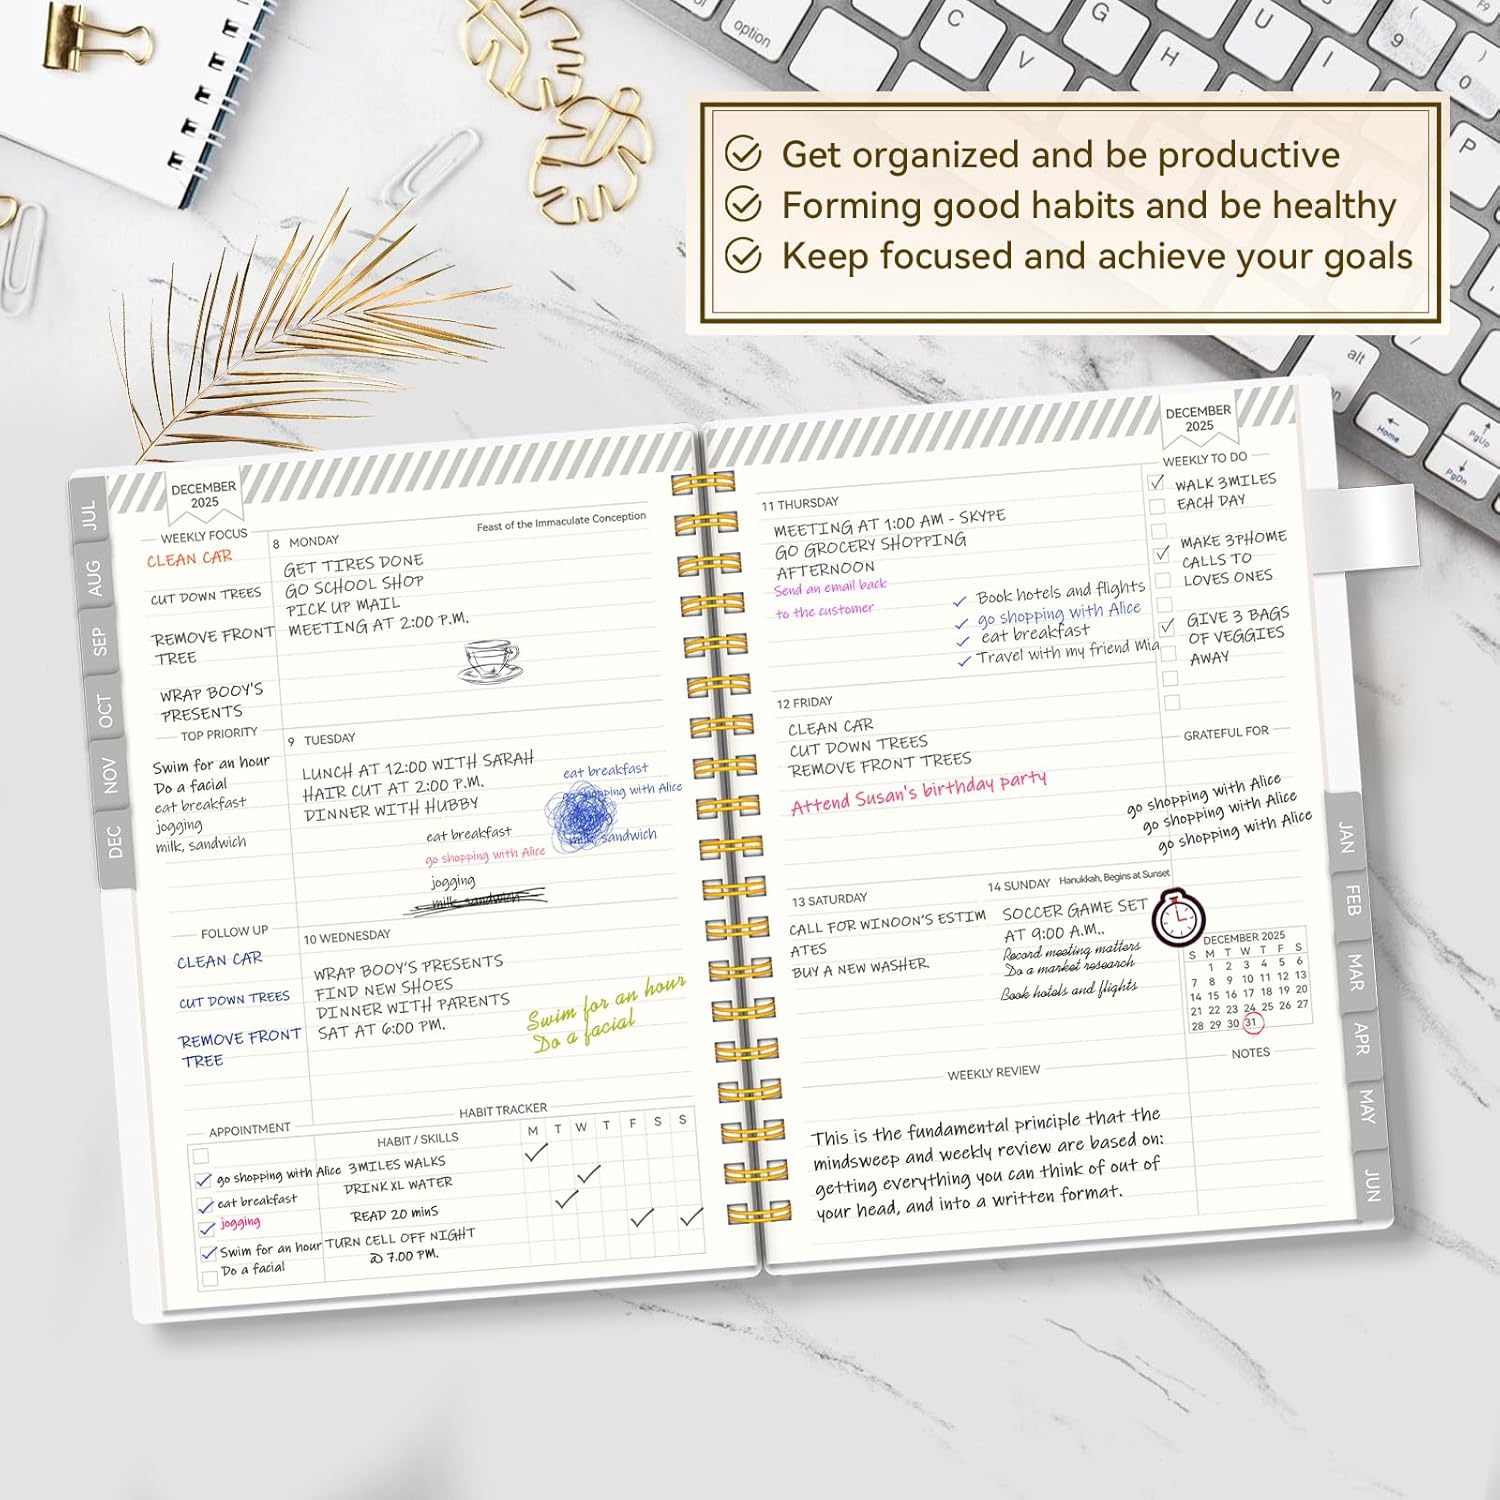 Get organized and be productive
Forming good habits and be healthy
Keep focused and achieve your goals
option
C
V
G
H
U
I
9
0
P
F9
alt
Home
PgUp
PgDn
JUL
AUG
SEP
OCT
NOV
DEC
DECEMBER
2025
WEEKLY FOCUS
CLEAN CAR
CUT DOWN TREES
REMOVE FRONT
TREE
WRAP BOOY'S
PRESENTS
TOP PRIORITY
Swim for an hour
Do a facial
eat breakfast
jogging
milk, sandwich
FOLLOW UP
CLEAN CAR
CUT DOWN TREES
REMOVE FRONT
TREE
Feast of the Immaculate Conception
8 MONDAY
GET TIRES DONE
GO SCHOOL SHOP
PICK UP MAIL
MEETING AT 2:00 P.M.
9 TUESDAY
LUNCH AT 12:00 WITH SARAH
HAIR CUT AT 2:00 P.M.
DINNER WITH HUBBY
eat breakfast
go shopping with Alice
jogging
milk, sandwich
eat breakfast
go shopping with Alice
milk, sandwich
10 WEDNESDAY
WRAP BOOY'S PRESENTS
FIND NEW SHOES
DINNER WITH PARENTS
SAT AT 6:00 PM.
Swim for an hour
Do a facial
APPOINTMENT
go shopping with Alice
eat breakfast
jogging
Swim for an hour
Do a facial
HABIT TRACKER
HABIT / SKILLS M T W T F S S
3MILES WALKS
DRINK XL WATER
READ 20 minS
TURN CELL OFF NIGHT
@ 7.00 PM.
11 THURSDAY
MEETING AT 1:00 AM - SKYPE
GO GROCERY SHOPPING
AFTERNOON
Send an email back
to the customer
Book hotels and flights
go shopping with Alice
eat breakfast
Travel with my friend Mia
12 FRIDAY
CLEAN CAR
CUT DOWN TREES
REMOVE FRONT TREES
Attend Susan's birthday party
13 SATURDAY
CALL FOR WINOON'S ESTIM
ATES
BUY A NEW WASHER.
14 SUNDAY Hanukkah, Begins at Sunset
SOCCER GAME SET
AT 9:00 A.M..
Record meeting matters
Do a market research
Book hotels and flights
WEEKLY REVIEW
This is the fundamental principle that the
mindsweep and weekly review are based on:
getting everything you can think of out of
your head, and into a written format.
DECEMBER
2025
WEEKLY TO DO
WALK 3MILES
EACH DAY
MAKE 3PHOME
CALLS TO
LOVES ONES
GIVE 3 BAGS
OF VEGGIES
AWAY
GRATEFUL FOR
go shopping with Alice
go shopping with Alice
go shopping with Alice
DECEMBER 2025
S M T W T F S
1 2 3 4 5 6
7 8 9 10 11 12 13
14 15 16 17 18 19 20
21 22 23 24 25 26 27
28 29 30 31
NOTES
JAN
FEB
MAR
APR
MAY
JUN